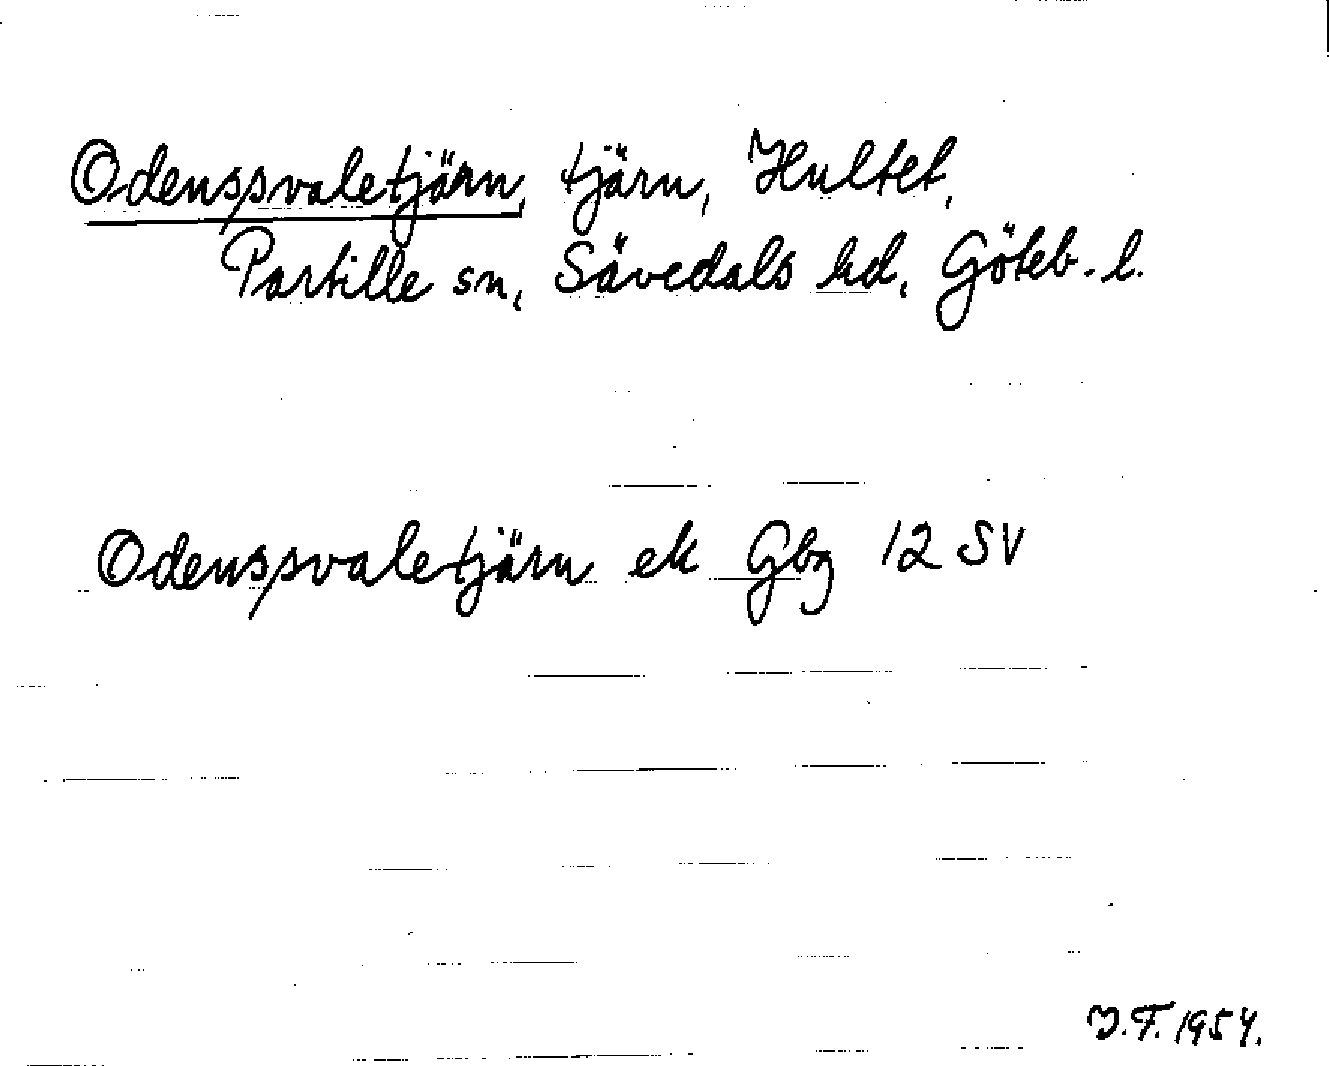 Odenspvaletjärn, tjärn, Hultet,
Partille sn, Sävedals hd, Göteb. l.
Odenspvaletjärn ek Gbg 12 SV
I.F. 1954.